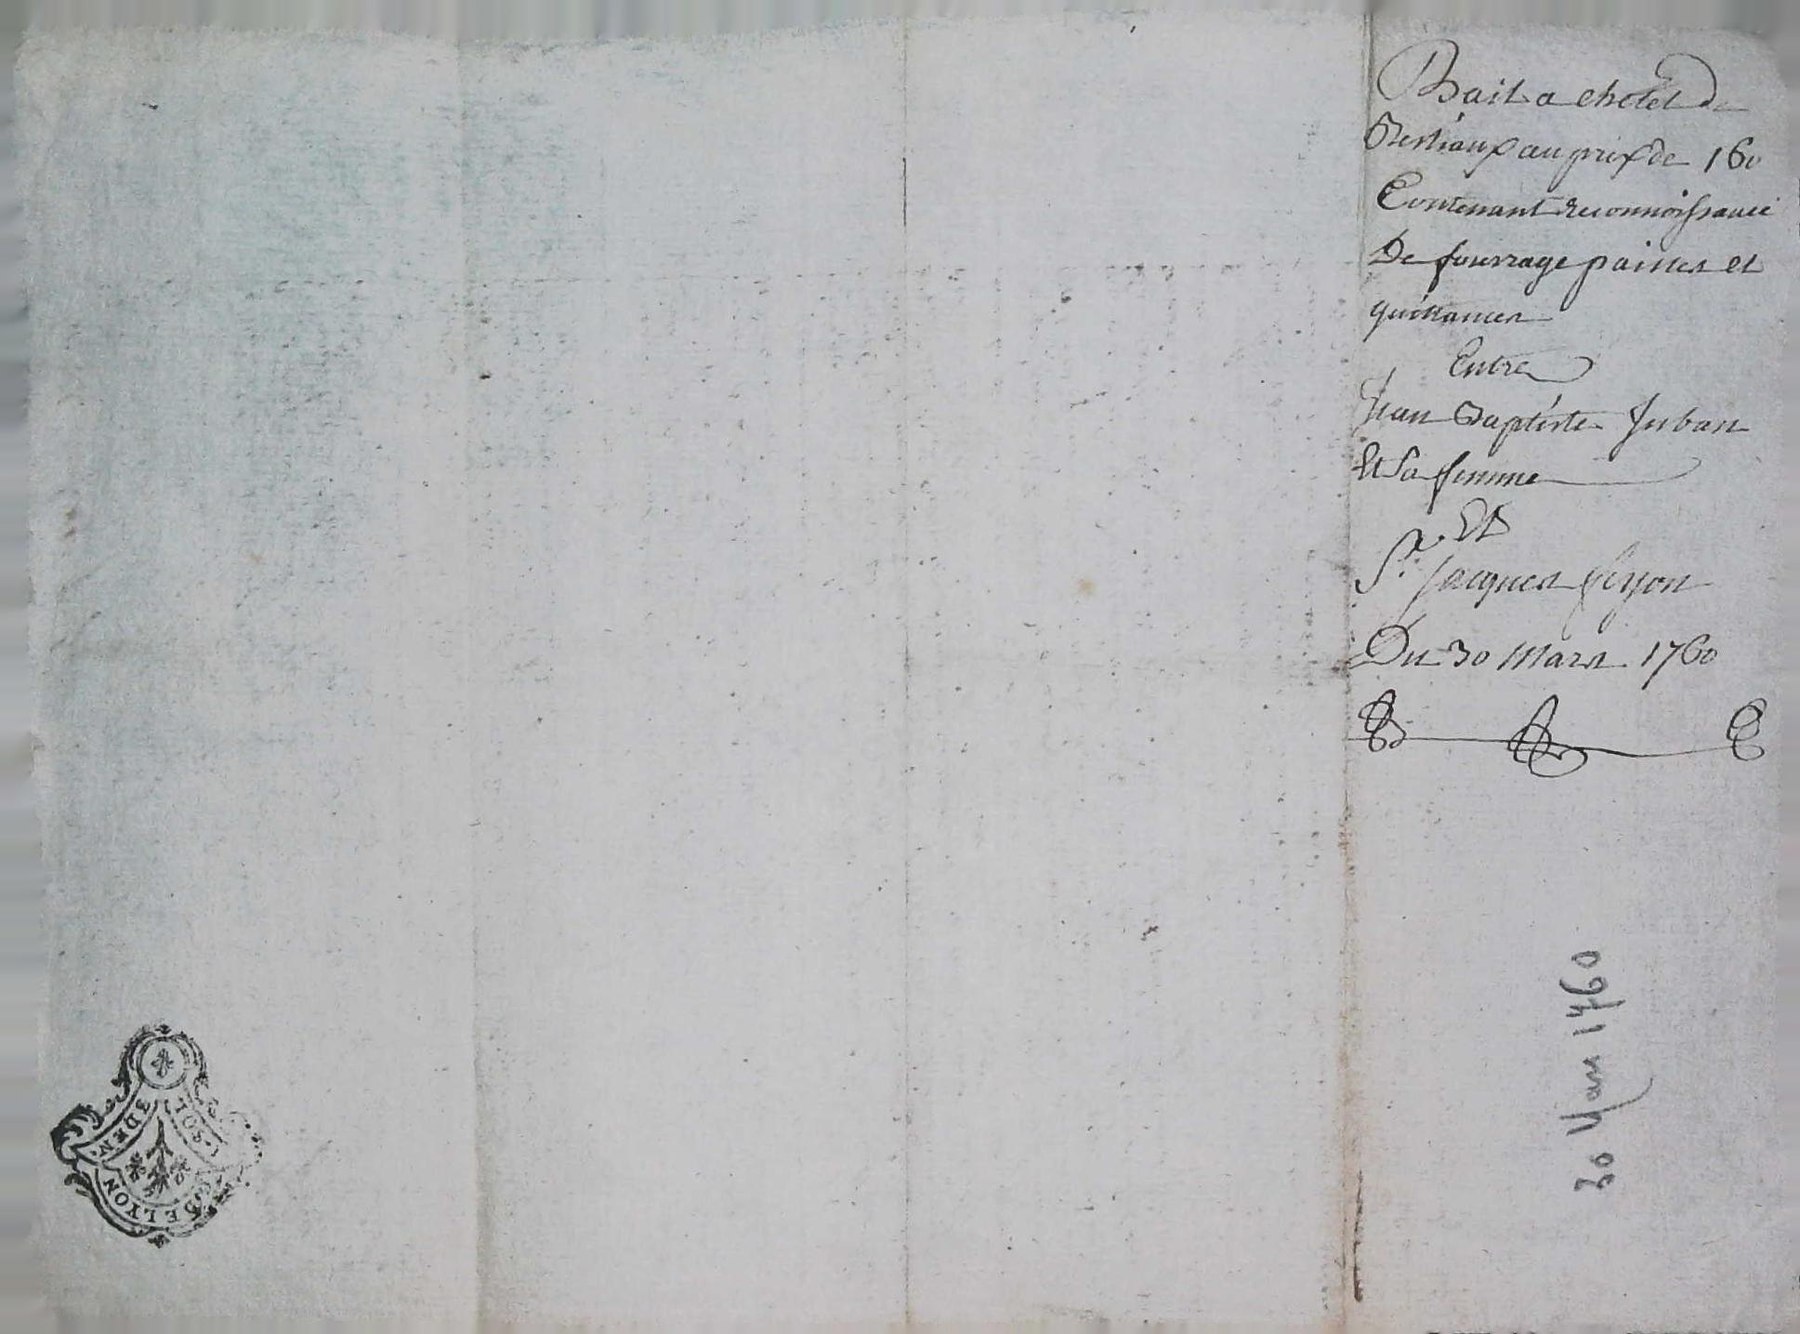 Bail a chetel de
Bestiaux au prix de 160
Contenant reconnoissance
De fourrage pailles et
quittances
Entre
Jean Baptiste Juban
Et Sa femme
Et
Sr. Jacques
Du 30 Mars 1760
30 Mars 1760
1.SOL.
3 DEN.
DE LYON